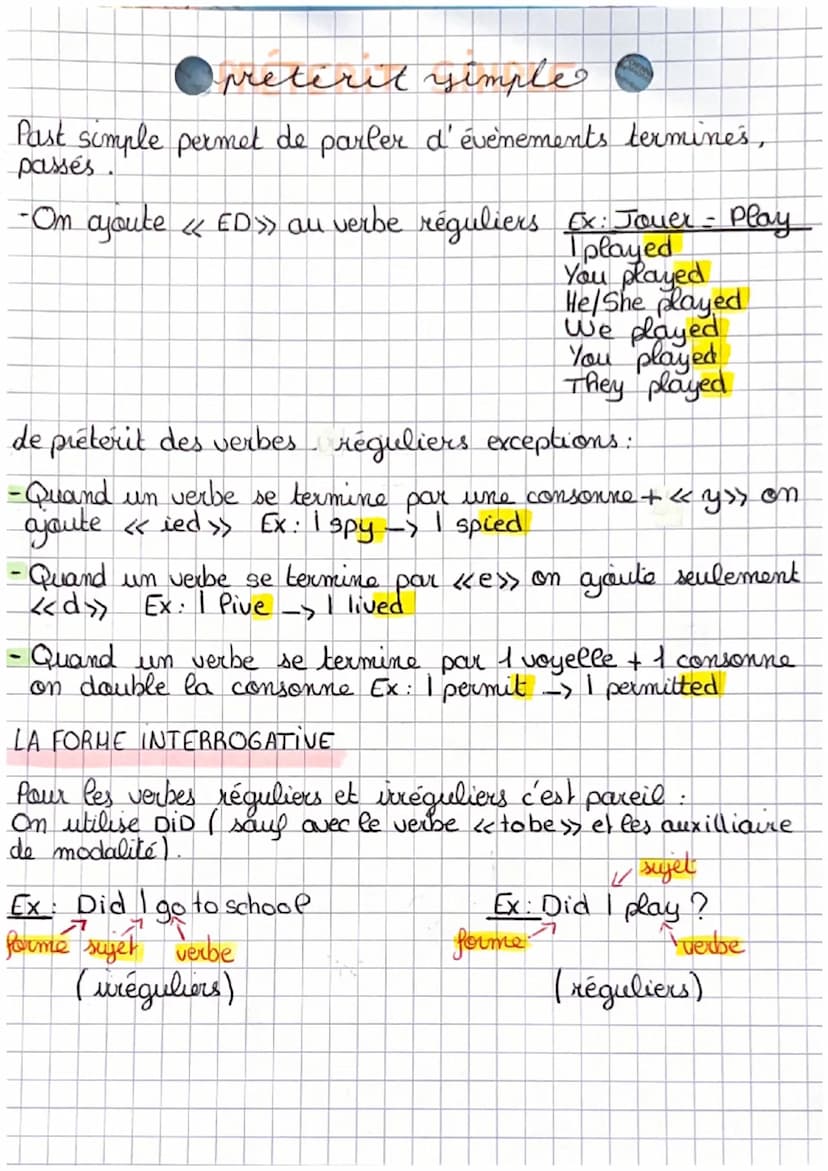 prétérit simple
Past simple permet de parler d'événements terminés,
passés.
-On ajoute « ED» au verbe réguliers Ex: Jouer - Play
I played
You played
He/She played
We played
You played
They played
de prétérit des verbes réguliers exceptions:
-Quand un verbe se termine par une consonne + « y» on
ajoute « ied» Ex: I spy -> I spied
-Quand un verbe se termine par «e» on ajoute seulement
«d» Ex: I live -> I lived
-Quand un verbe se termine par 1 voyelle + 1 consonne
on double la consonne Ex: I permit -> I permitted
LA FORME INTERROGATIVE
Pour les verbes réguliers et irréguliers c'est pareil :
On utilise DiD ( sauf avec le verbe «to be» et les auxilliaire
de modalité).
sujet
Ex: Did I go to school Ex: Did I play ?
forme sujet verbe forme verbe
(irréguliers) (réguliers)